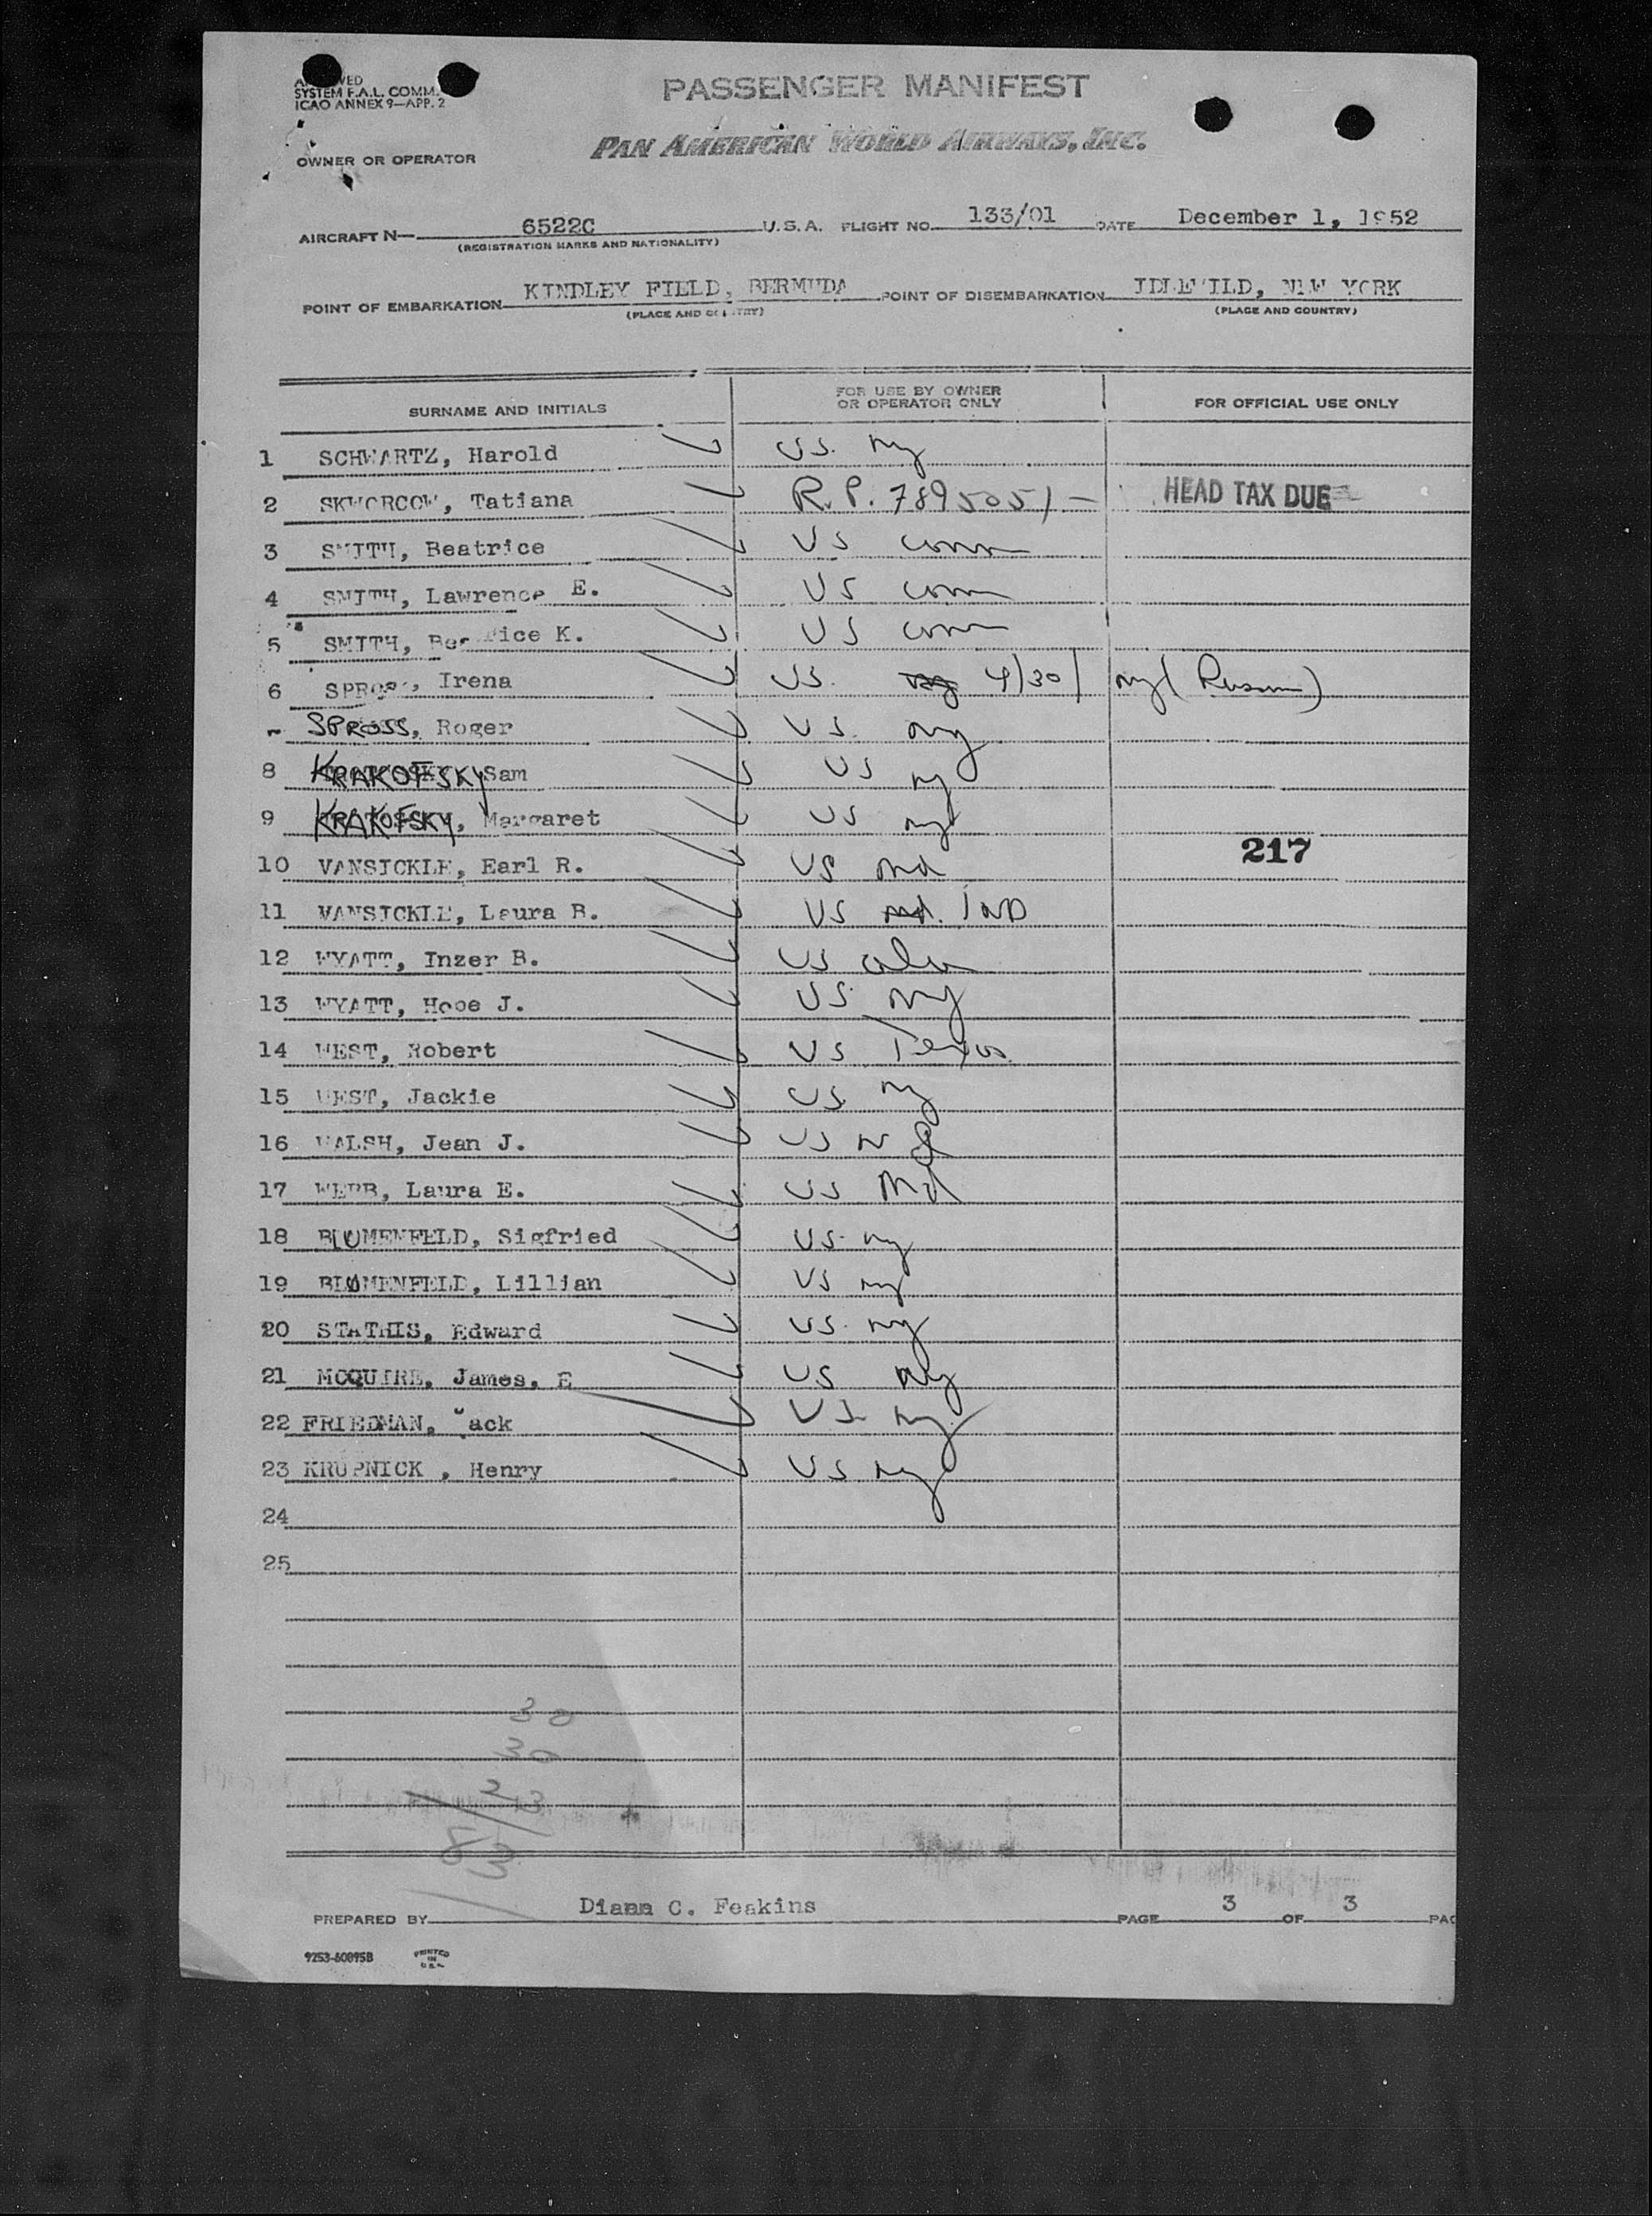 SYSTEM F.A.L. COMM.
ICAO ANNEX 9—APP. 2
PASSENGER MANIFEST
PAN AMERICAN WORLD AIRWAYS, INC.
OWNER OR OPERATOR
AIRCRAFT N— 6522C U.S.A. FLIGHT NO. 133/01 DATE December 1, 1952
(REGISTRATION MARKS AND NATIONALITY)
POINT OF EMBARKATION KINDLEY FIELD, BERMUDA POINT OF DISEMBARKATION IDLEWILD, NEW YORK
(PLACE AND COUNTRY) (PLACE AND COUNTRY)
SURNAME AND INITIALS FOR USE BY OWNER OR OPERATOR ONLY FOR OFFICIAL USE ONLY
1 SCHWARTZ, Harold US. ny
2 SKWORCOW, Tatiana R.P. 7895051— HEAD TAX DUE
3 SMITH, Beatrice US conn
4 SMITH, Lawrence E. US conn
5 SMITH, Beatrice K. US conn
6 SPROSS, Irena US. 4/30/ ny
SPROSS, Roger US. ny
8 KRAKOFSKY Sam US ny
9 KRAKOFSKY, Margaret US ny
217
10 VANSICKLE, Earl R. US Md
11 VANSICKLE, Laura B. US Md. IND
12 WYATT, Inzer B. US ala
13 WYATT, Hope J. US ny
14 WEST, Robert US Texas
15 WEST, Jackie US. ny
16 WALSH, Jean J. US NJ
17 WEBB, Laura E. US Md
18 BLUMENFELD, Sigfried US. ny
19 BLUMENFELD, Lillian US ny
20 STATHIS, Edward US. ny
21 MCQUIRE, James, E US ny
22 FRIEDMAN, Jack US ny
23 KRUPNICK , Henry US ny
24
25
30
30
23
83
PREPARED BY Diana C. Feakins PAGE 3 OF 3 PAG
9253-60895B PRINTED IN U.S.A.